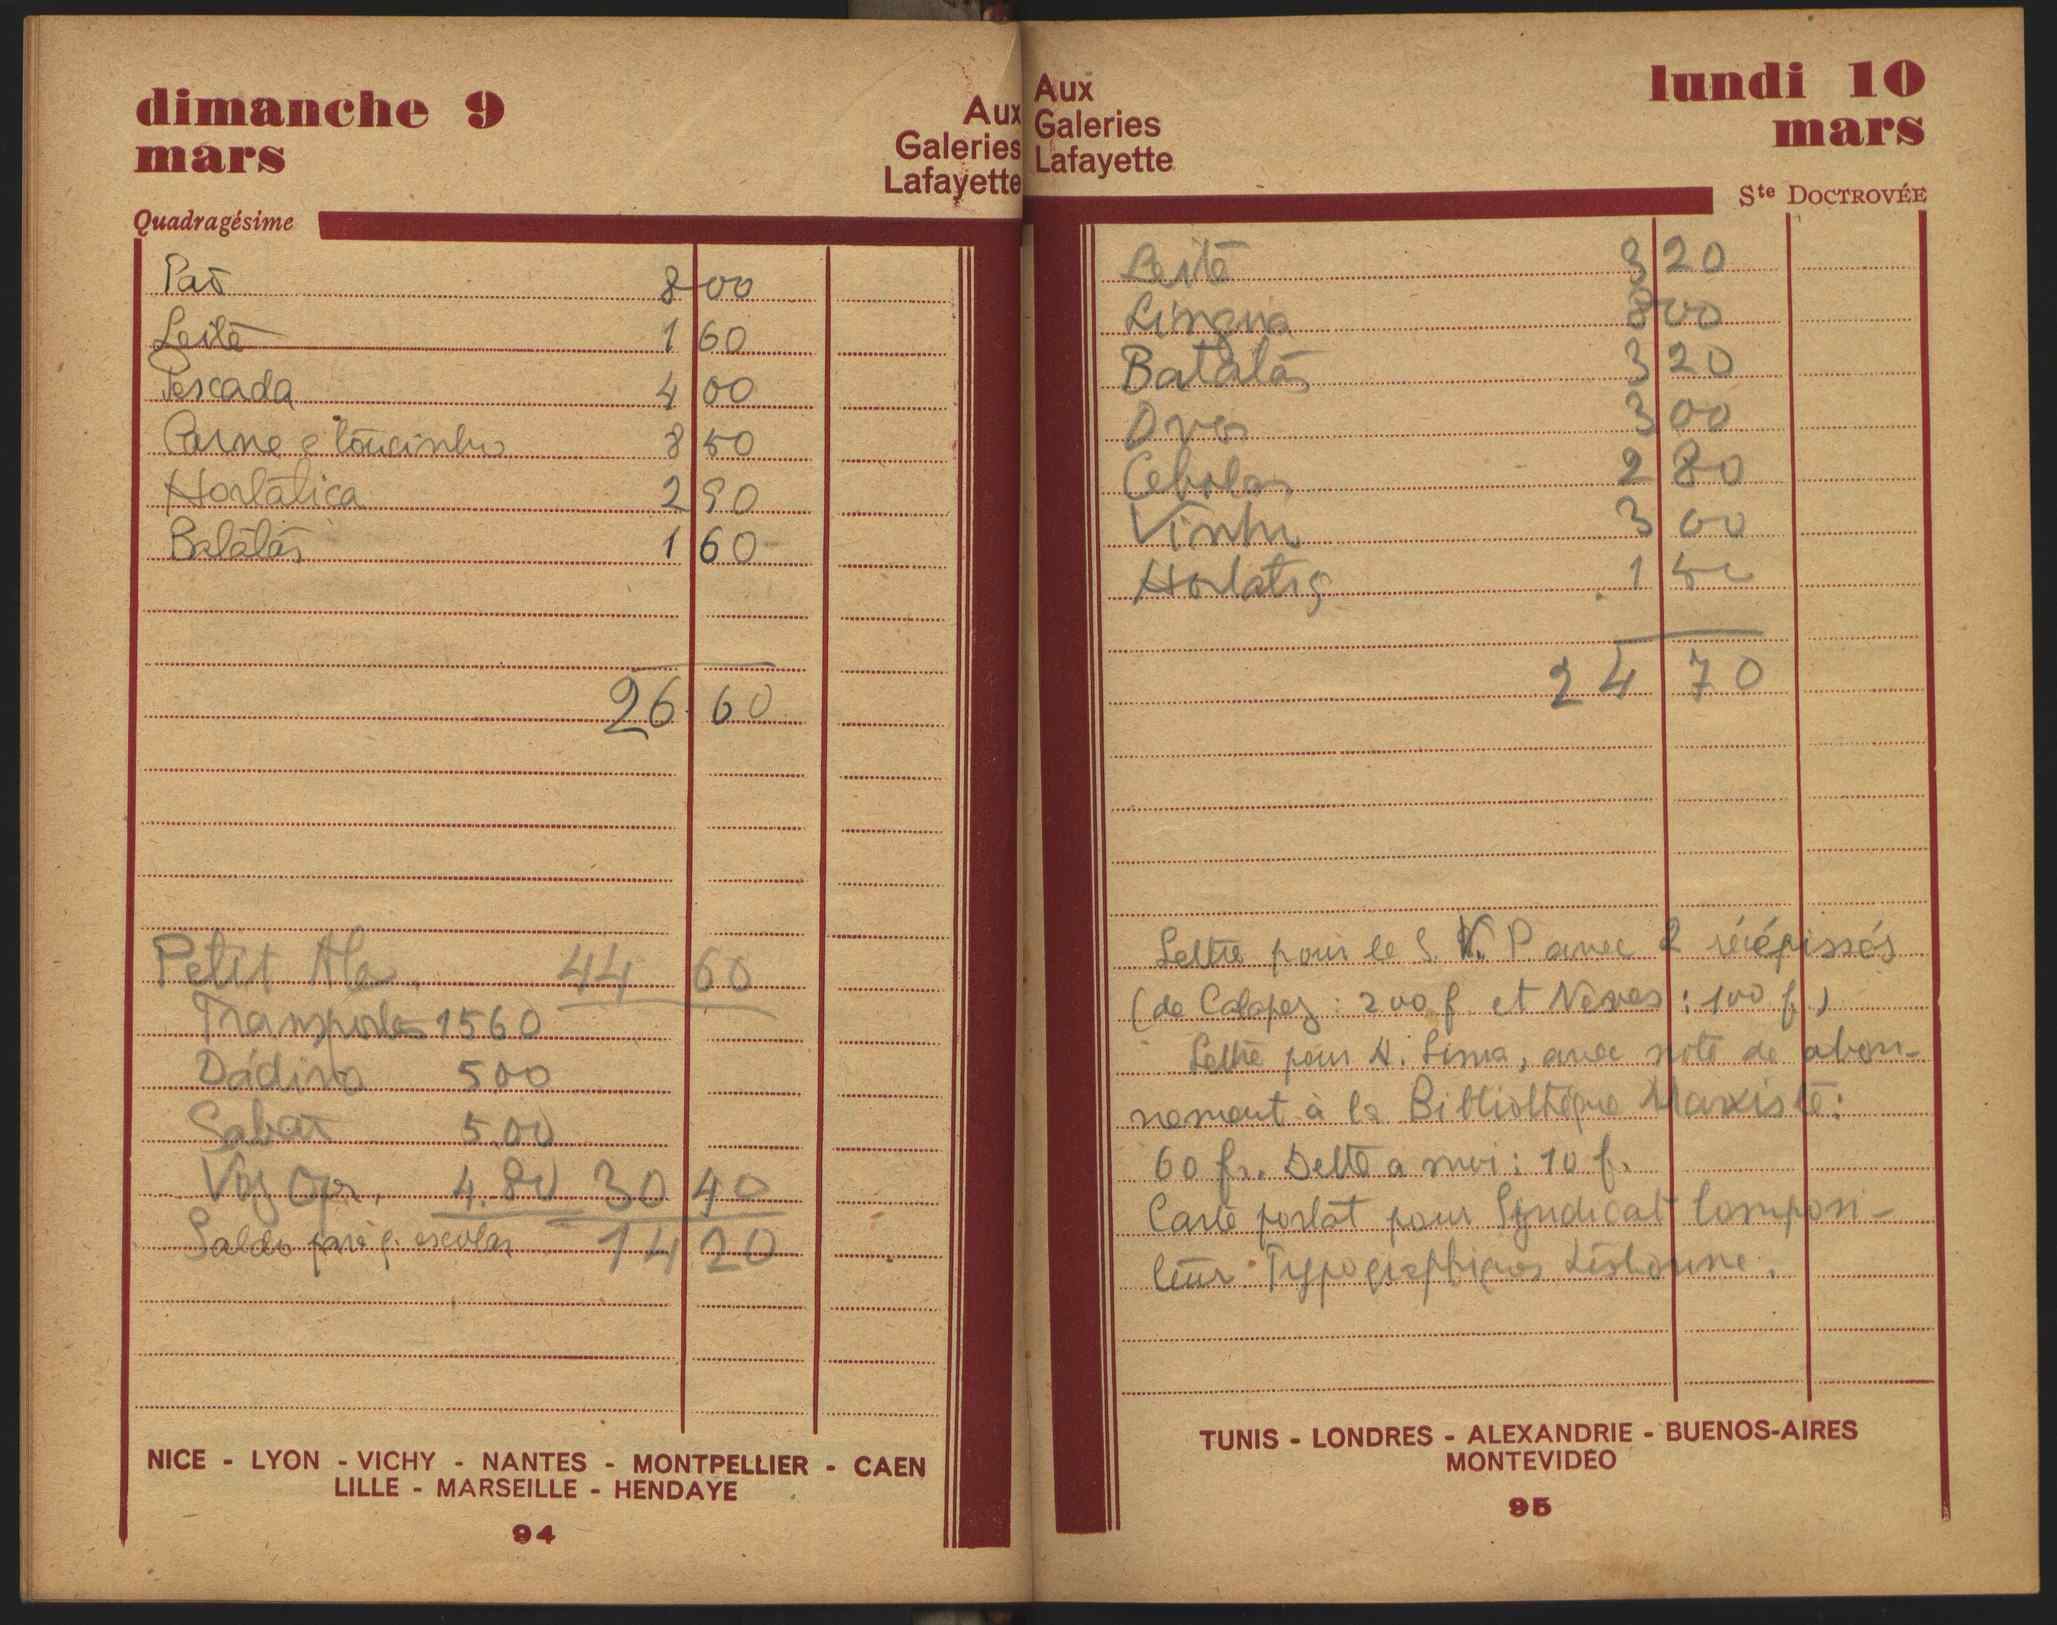 dimanche 9
mars
Aux
Galeries
Lafayette
Quadragésime
Paõ 8 00
Leite 1 60
Pescada 4 00
Carne e toucinho 8 50
Hortaliça 2 90
Batatas 1 60
26 60
Petit Ale. 44 60
Transportes 1560
Dádiva 500
Sabaõ 5.00
Voz Op. 4.80 30 40
Saldo escolar 14 20
NICE - LYON - VICHY - NANTES - MONTPELLIER - CAEN
LILLE - MARSEILLE - HENDAYE
94
Aux
Galeries
Lafayette
lundi 10
mars
Ste DOCTROVÉE
Leite 3 20
Lingua 8 00
Batatas 3 20
Ovos 3 00
Cebolas 2 80
Vinho 3 00
Hortaliç 1 50
24 70
Lettre pour le S. V. P avec 2 récépissés
(de Calapez : 200 f. et Neves : 100 f.)
Lettre pour A. Lima, avec note de abon-
nement à la Bibliothèque Marxiste:
60 fr. Dette a moi : 10 f.
Carte postat pour Syndicat Composi-
teur Typographiques Lisbonne.
TUNIS - LONDRES - ALEXANDRIE - BUENOS-AIRES
MONTEVIDEO
95